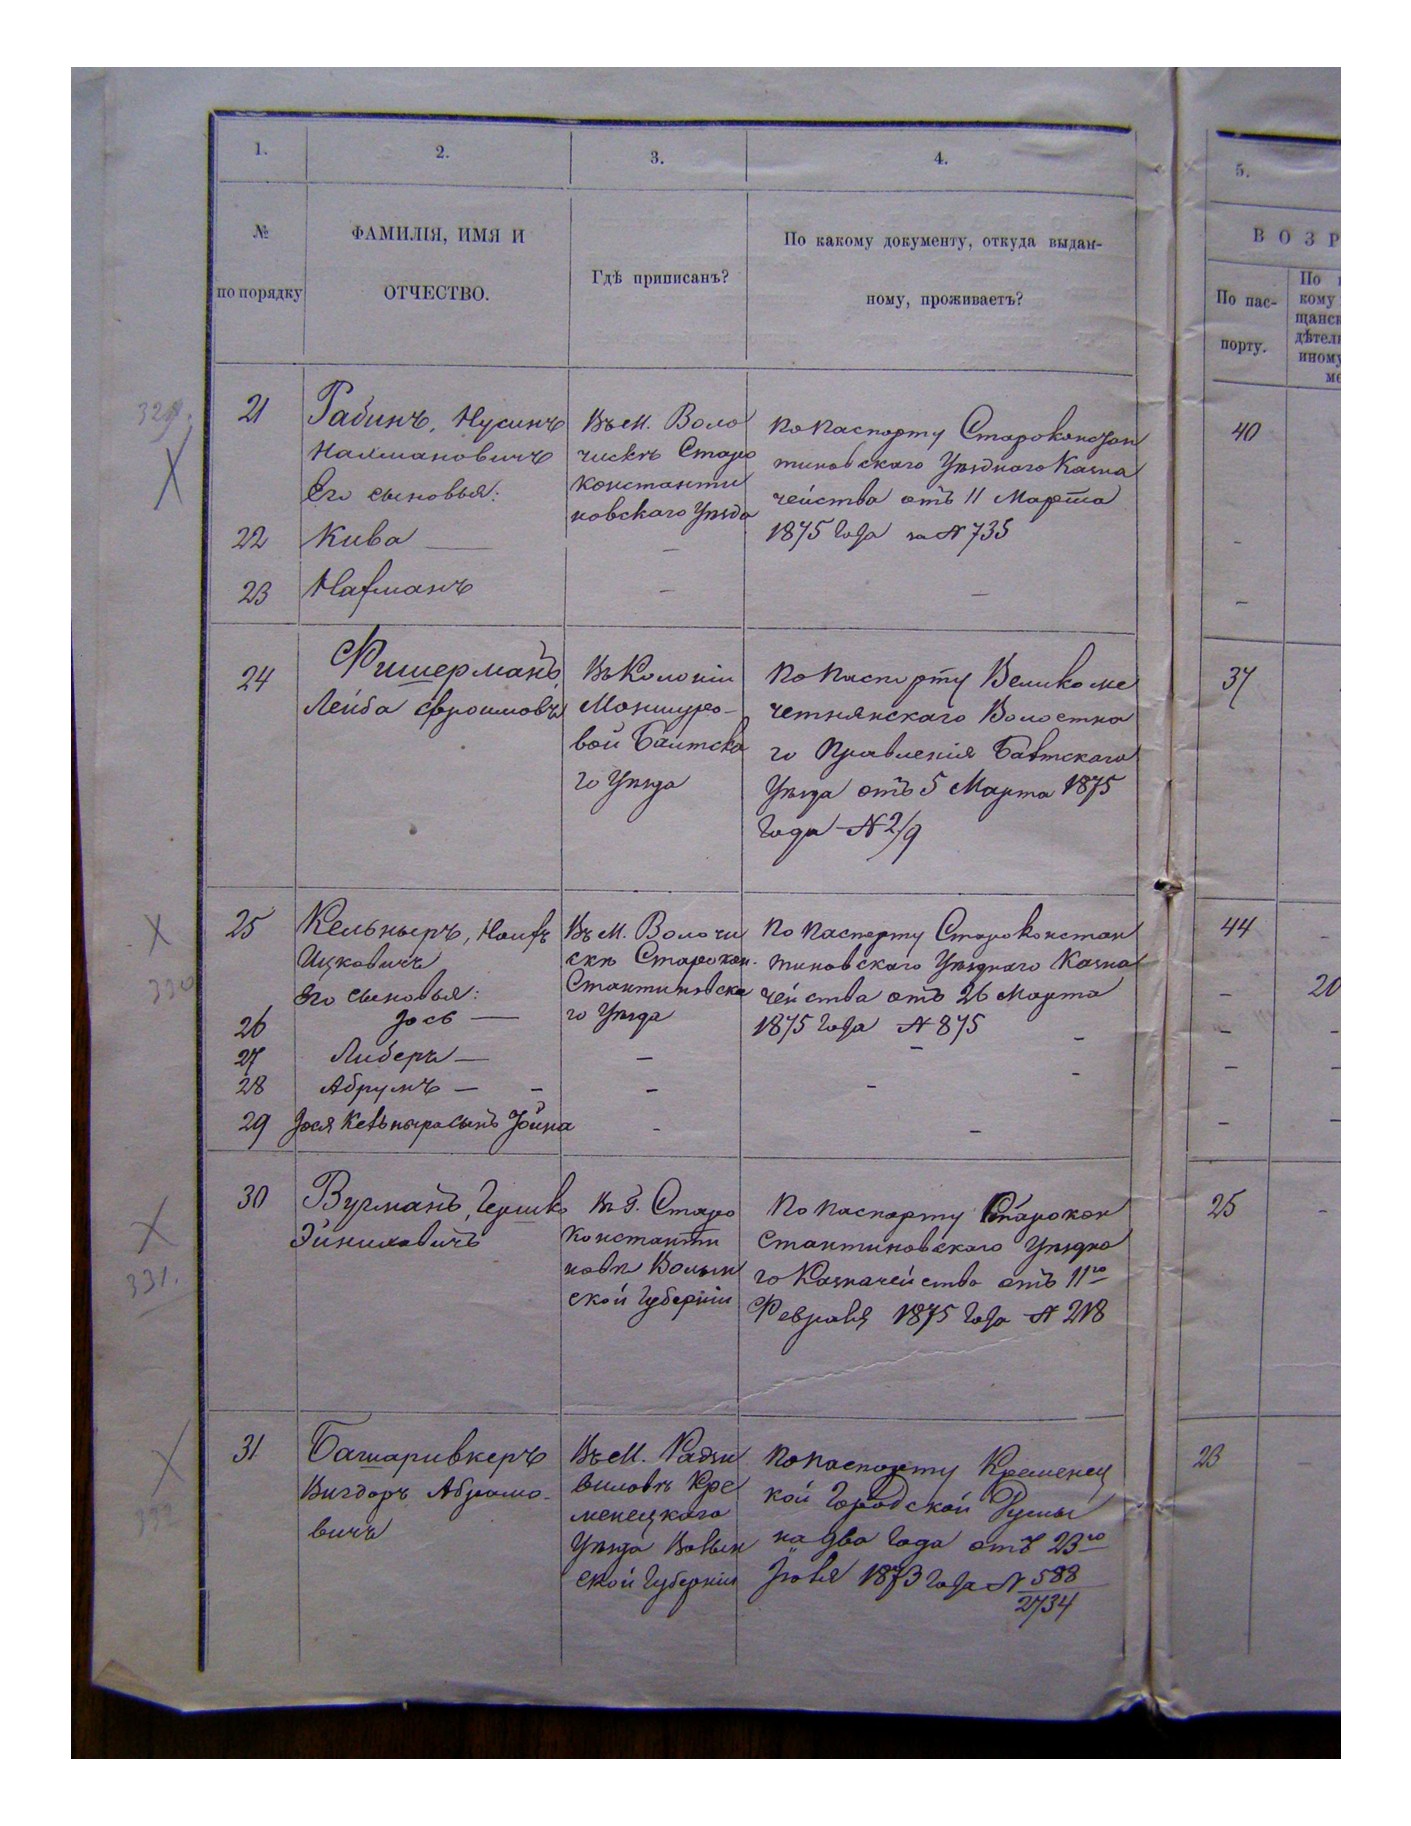 1.
2.
3.
4.
5.
№
по порядку
ФАМИЛІЯ, ИМЯ И
ОТЧЕСТВО.
Гдѣ приписанъ?
По какому документу, откуда выдан-
ному, проживаетъ?
ВОЗР
По пас-
порту.
По
кому
щанск
дѣтел
иному
ме
329.
21
Рабинъ, Нусинъ
Нахмановичъ
Его сыновья:
22
Кива —
23
Нахманъ
Въ М. Воло
чискѣ Старо
константи
новскаго Уѣзда
По Паспорту Староконстан
тиновскаго Уѣзднаго Казна
чейства отъ 11 Марта
1875 Года за N 735
40
24
Фишерманъ,
Лейба Ефроимовъ
Въ Колоніи
Маншуро-
вой Балтска
го Уѣзда
По Паспорту Великоме
четнянскаго Волостна
го Правленія Балтскаго
Уѣзда отъ 5 Марта 1875
Года N 2/9
37
330
25
Кельныръ,
Ицковичъ
Его сыновья:
26
Іось —
27
Либеръ —
28
Абрумъ — —
29
Іося Кельныра сынъ Іойна
Въ М. Волочи
скѣ Старокон-
стантиновска
го Уѣзда
По Паспорту Староконстан
тиновскаго Уѣзднаго Казна
чейства отъ 26 Марта
1875 Года N 875
44
20
331.
30
Вугманъ, Гершко
Эйниховичъ
Въ Г. Старо
константи
новѣ Волын
ской Губерніи
По паспорту Старокон
стантиновскаго Уѣздна
го Казначейства отъ 11го
Февраля 1875 Года N 218
25
31
Башаривкеръ
Вигдоръ Абрамо-
вичъ
Въ М. Радзи
виловѣ Кре
менецкаго
Уѣзда Волын
ской Губерніи
По паспорту Кременец
кой Городской Думы
на два Года отъ 23го
Іюля 1873 Года N 588
2734
23